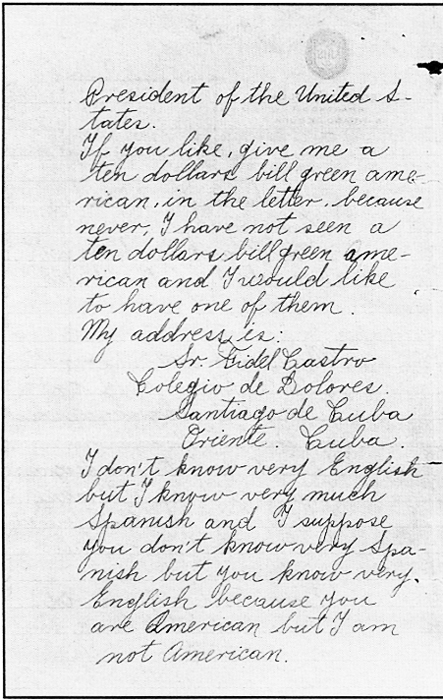 President of the United S-
tates.
If you like, give me a
ten dollars bill green ame-
rican, in the letter, because
never, I have not seen a
ten dollars bill green ame-
rican and I would like
to have one of them.
My address is:
Sr. Fidel Castro
Colegio de Dolores.
Santiago de Cuba
Oriente. Cuba.
I don't know very English
but I know very much
Spanish and I suppose
you don't know very Spa-
nish but you know very
English because you
are American but I am
not American.